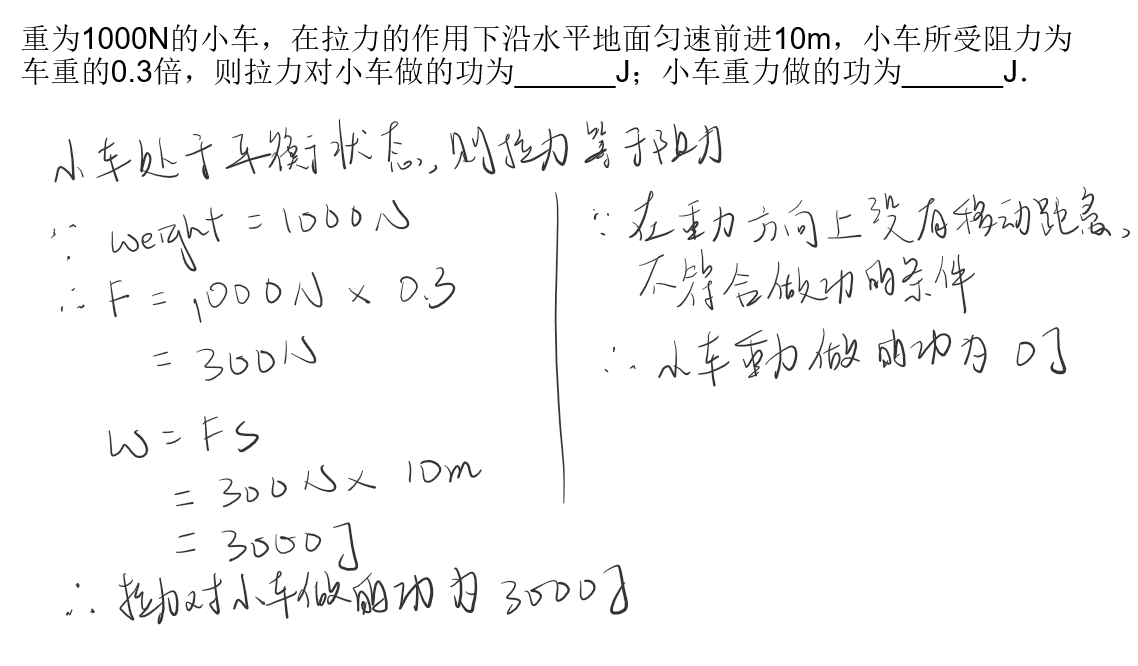 重为1000N的小车，在拉力的作用下沿水平地面匀速前进10m，小车所受阻力为
车重的0.3倍，则拉力对小车做的功为______J；小车重力做的功为______J．
小车处于平衡状态，则拉力等于阻力
∵ weight = 1000N
∴ F = 1000N × 0.3
= 300N
W = FS
= 300N × 10m
= 3000J
∴ 拉力对小车做的功为 3000J
∵ 在重力方向上没有移动距离，
不符合做功的条件
∴ 小车重力做的功为 0J